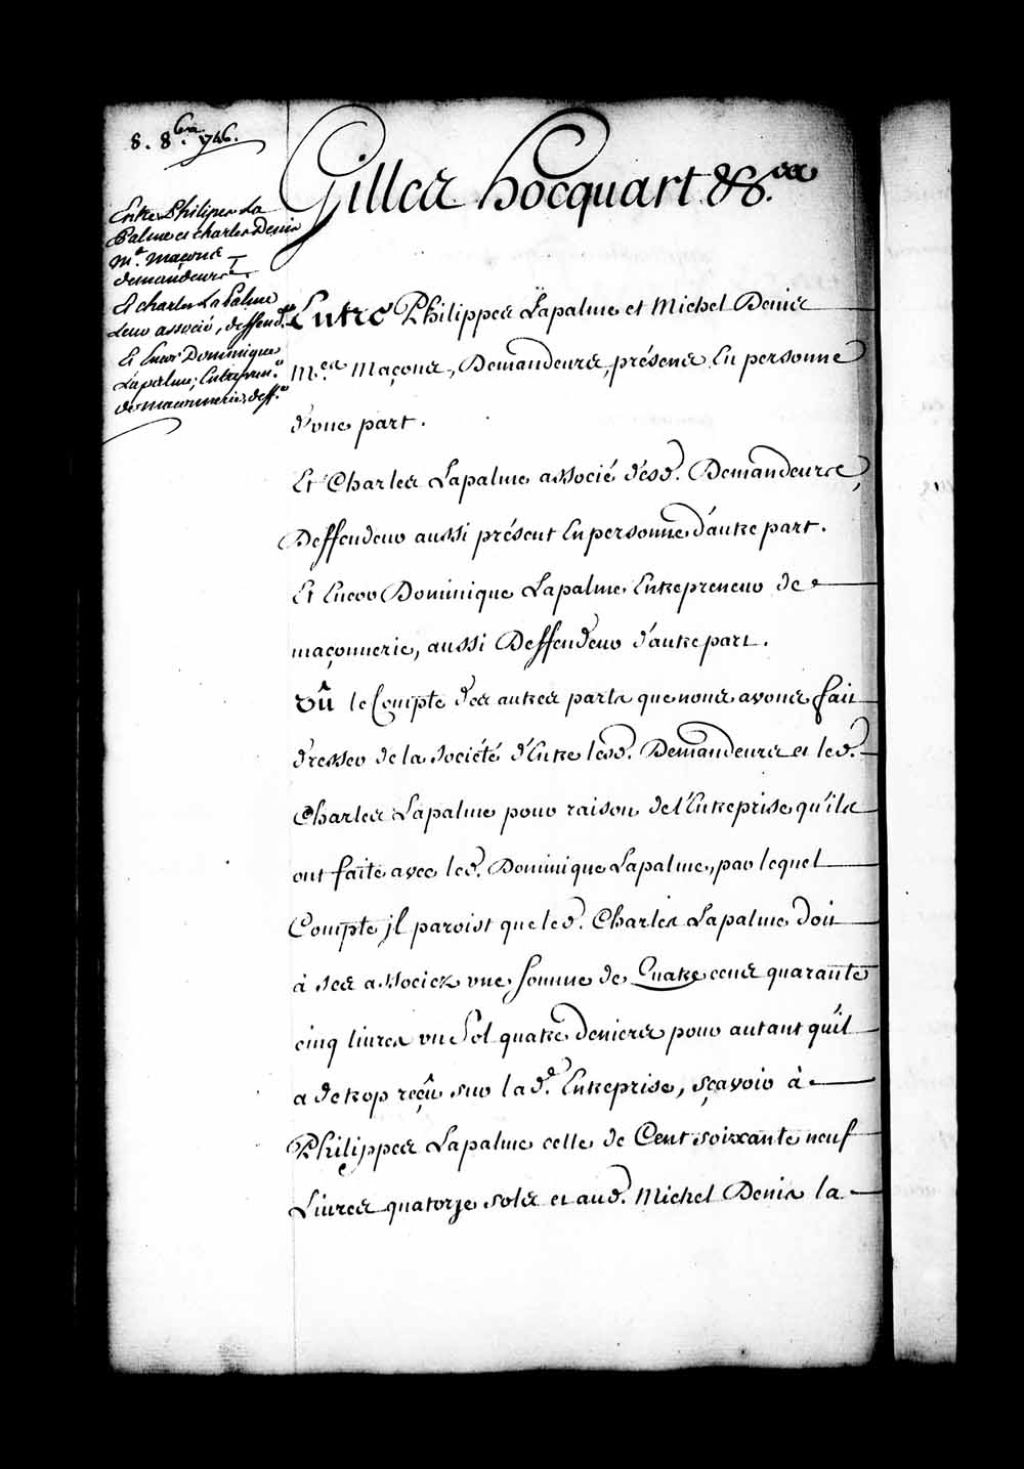 8. 8bre. 1746.
Entre Philipes La
Palme et charles Denis
Mes. maçons
demandeurs
Et charles La Palme
leur associé, deffendr.
Et Encor Dominique
Lapalme, Entrepreneur
de maçonnerie, deff.r
Gilles hocquart &c.a
Entre Philippes Lapalme et Michel Denis
M.es Maçons, Demandeurs, présens En personne
d'vne part.
Et Charles Lapalme associé desd. Demandeurs,
Deffendeur aussi présent En personne d'autre part.
Et Encor Dominique Lapalme Entrepreneur de
maçonnerie, aussi Deffendeur d'autre part.
Vû le Compte des autres parts que nous avons fait
dresser de la société d'Entre lesd. Demandeurs et led.
Charles Lapalme pour raison de l'Entreprise qu'ils
ont faite avec led. Dominique Lapalme, par lequel
Compte jl paroist que led. Charles Lapalme doit
à ses associez vne somme de Quatre cens quarante
cinq livres vn Sol quatre deniers pour autant qu'il
a de trop reçû sur lad.e Entreprise, sçavoir à
Philippes Lapalme celle de Cent soixante neuf
Livres quatorze sols et aud. Michel Denis la